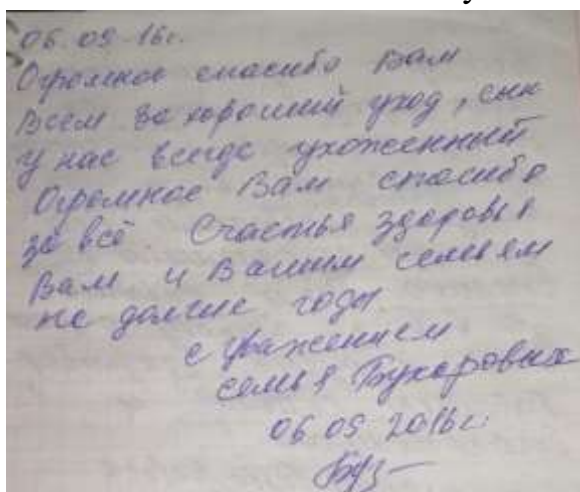 06.09-16г.
Огромное спасибо Вам
Всем за хороший уход, сын
у нас всегда ухоженный
Огромное Вам спасибо
за всё Счастья здоровья
Вам и Вашим семьям
на долгие годы
с уважением
семья Бухаровых
06 09 2016г.